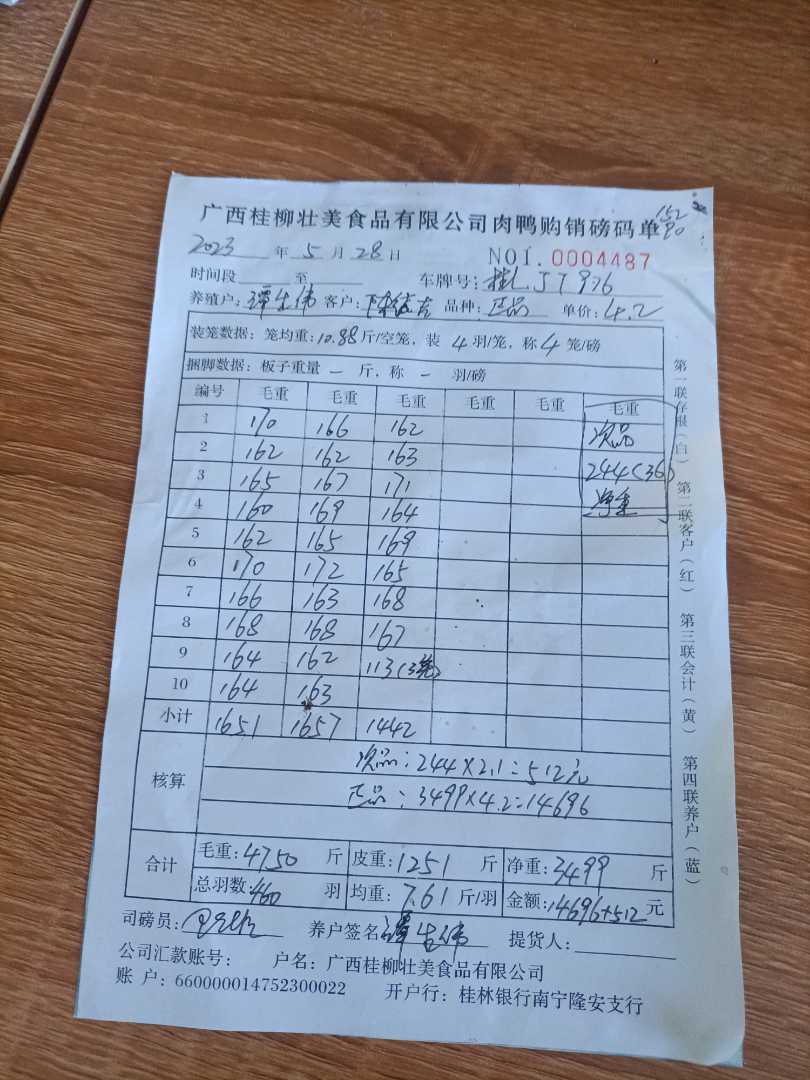 广西桂柳壮美食品有限公司肉鸭购销磅码单
152
90
2023 年 5 月 28 日 NO1. 0004487
时间段 至 车牌号: 桂L JT976
养殖户: 伟 客户: 品种: 正品 单价: 4.2
装笼数据: 笼均重: 10.88 斤/空笼, 装 4 羽/笼, 称 4 笼/磅
捆脚数据: 板子重量 — 斤, 称 — 羽/磅
编号 毛重 毛重 毛重 毛重 毛重 毛重
1 170 166 162 次品
2 162 162 163 244(36)
3 165 167 171 净重
4 160 169 164
5 162 165 169
6 170 172 165
7 166 163 168
8 168 168 167
9 164 162 113(3笼)
10 164 163
小计 1651 1657 1442
核算 次品: 244×2.1=512元
正品: 3499×4.2=14696
合计 毛重: 4750 斤 皮重: 1251 斤 净重: 3499 斤
总羽数: 460 羽 均重: 7.61 斤/羽 金额: 14696+512 元
司磅员: 养户签名 伟 提货人:
公司汇款账号: 户名: 广西桂柳壮美食品有限公司
账 户: 660000014752300022 开户行: 桂林银行南宁隆安支行
第一联存根(白) 第二联客户(红) 第三联会计(黄) 第四联养户(蓝)